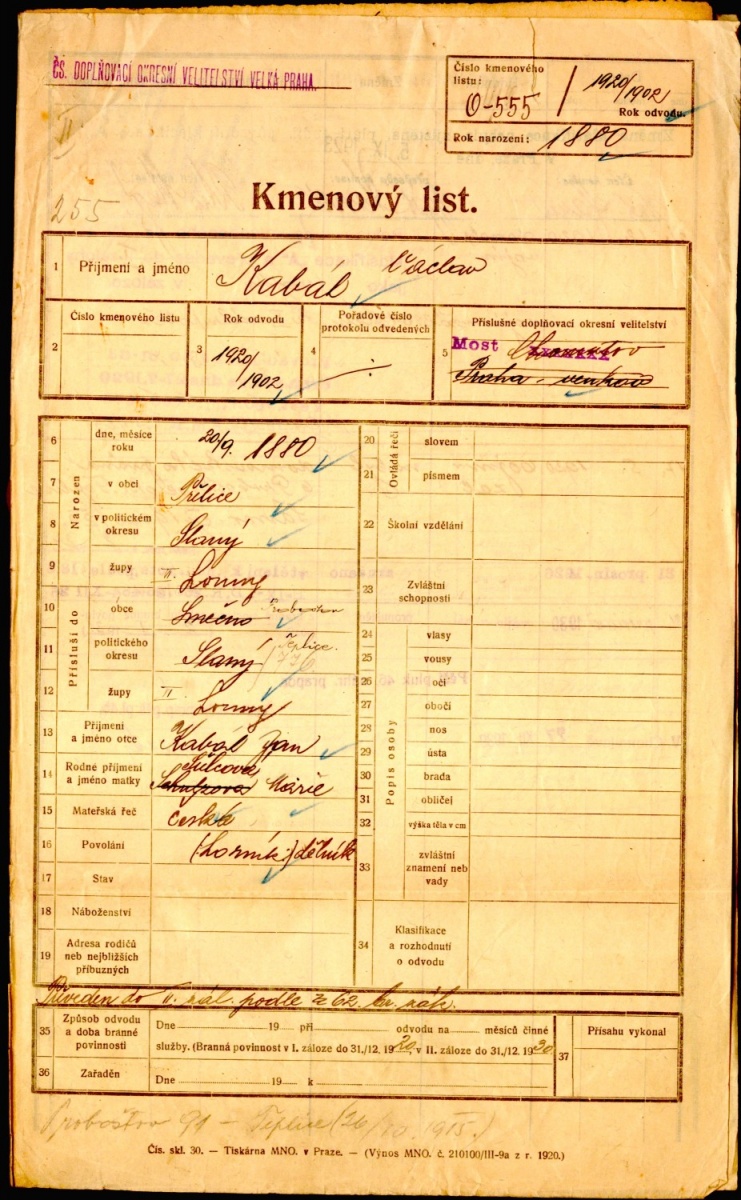 ČS. DOPLŇOVACÍ OKRESNÍ VELITELSTVÍ VELKÁ PRAHA.
Číslo kmenového listu:
O-555 / 1920/1902
Rok odvodu.
Rok narození: 1880
II
255
Kmenový list.
1 Příjmení a jméno Kabát Václav
2 Číslo kmenového listu
3 Rok odvodu 1920/1902
4 Pořadové číslo protokolu odvedených
5 Příslušné doplňovací okresní velitelství
Most Chomutov
Praha-venkov
Narozen
6 dne, měsíce roku 20/9. 1880
7 v obci Přelice
8 v politickém okresu Slaný
9 župy II. Louny
Přísluší do
10 obce Smečno
11 politického okresu Slaný Teplice.
12 župy II Louny
13 Příjmení a jméno otce Kabát Jan
14 Rodné příjmení a jméno matky Marie
15 Mateřská řeč česká
16 Povolání (horník) dělník
17 Stav
18 Náboženství
19 Adresa rodičů neb nejbližších příbuzných
Ovládá řeči
20 slovem
21 písmem
22 Školní vzdělání
23 Zvláštní schopnosti
Popis osoby
24 vlasy
25 vousy
26 oči
27 obočí
28 nos
29 ústa
30 brada
31 obličej
32 výška těla v cm
33 zvláštní znamení neb vady
34 Klasifikace a rozhodnutí o odvodu
Převeden do II. zál. podle § 62. br. zák.
35 Způsob odvodu a doba branné povinnosti
Dne 19 při odvodu na měsíců činné
služby. (Branná povinnost v I. záloze do 31./12. 1920, v II. záloze do 31./12. 1930
36 Zařaděn Dne 19 k
37 Přísahu vykonal
Proboštov 91 - Teplice (26/10. 1915.)
Čís. skl. 30. — Tiskárna MNO. v Praze. — (Výnos MNO. č. 210100/III-9a z r. 1920.)